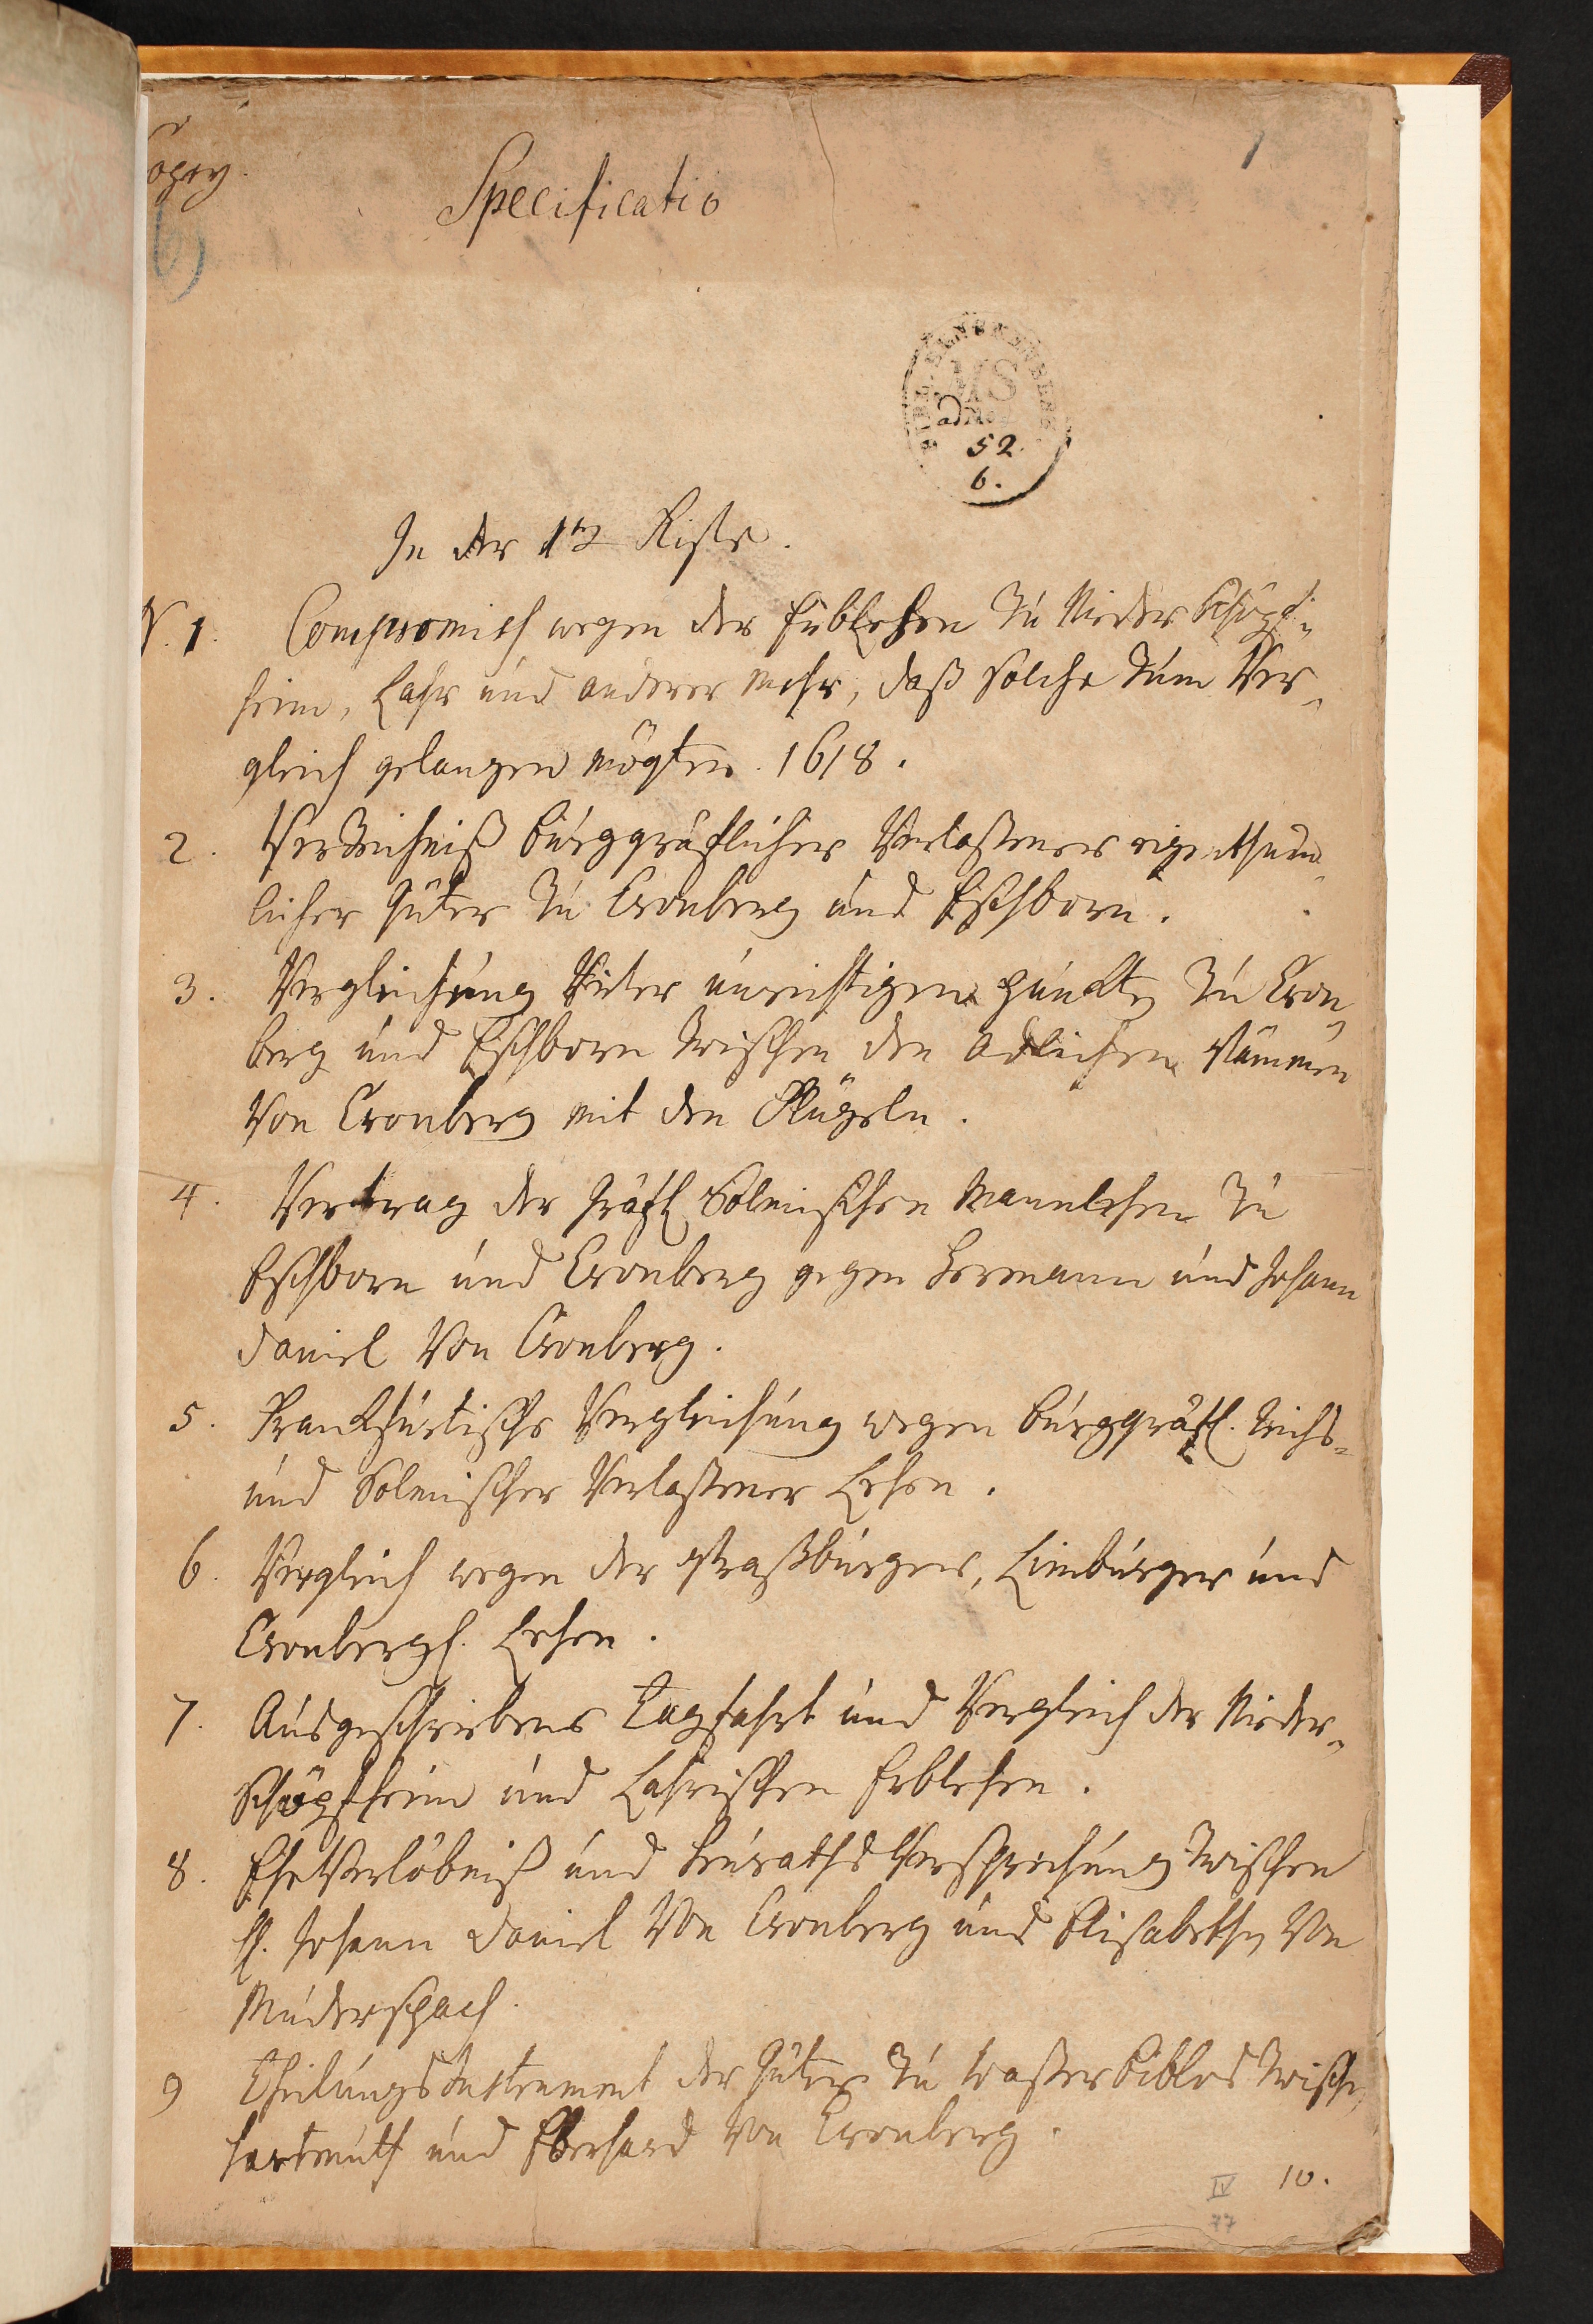 1
Specificatio
MS
52.
6.
In der 1ten Kiste.
N. 1. Compromiss wegen der Erblehen zu Nieder Schöpf-
heim, Lahr und anderer mehr, daß solche zum Ver-
gleich gelangen mögten. 1618.
2. Verzeichniß burggräflicher Verlaßener eigenthum-
licher Güter zu Cronberg und Eschborn.
3. Vergleichung vieler unrichtigen puncten zu Cron-
berg und Eschborn zwischen den Adlichen Stämmen
von Cronberg mit den Flügeln.
4. Vertrag der Gräfl. Solmischen Mannlehen zu
Eschborn und Cronberg gegen Hermann und Johann
Daniel von Cronberg.
5. Franckfurtische Vergleichung wegen burggräfl. Reichs-
und Solmischer Verlaßener Lehen.
6. Vergleich wegen der Straßburger, Limburger und
Cronbergs. Lehen.
7. Ausgeschriebene Tagfahrt und Vergleich der Nieder-
Schöpfheim und Lahrischen Erblehen.
8. Eheverlöbniß und Heuraths Versprechung zwischen
H. Johann Daniel von Cronberg und Elisabethen von
Muderspach.
9 Theilungs Instrument der Güter zu Waßer Biblos zwischen
Hartmuth und Eberhard von Cronberg.
10.
IV
77